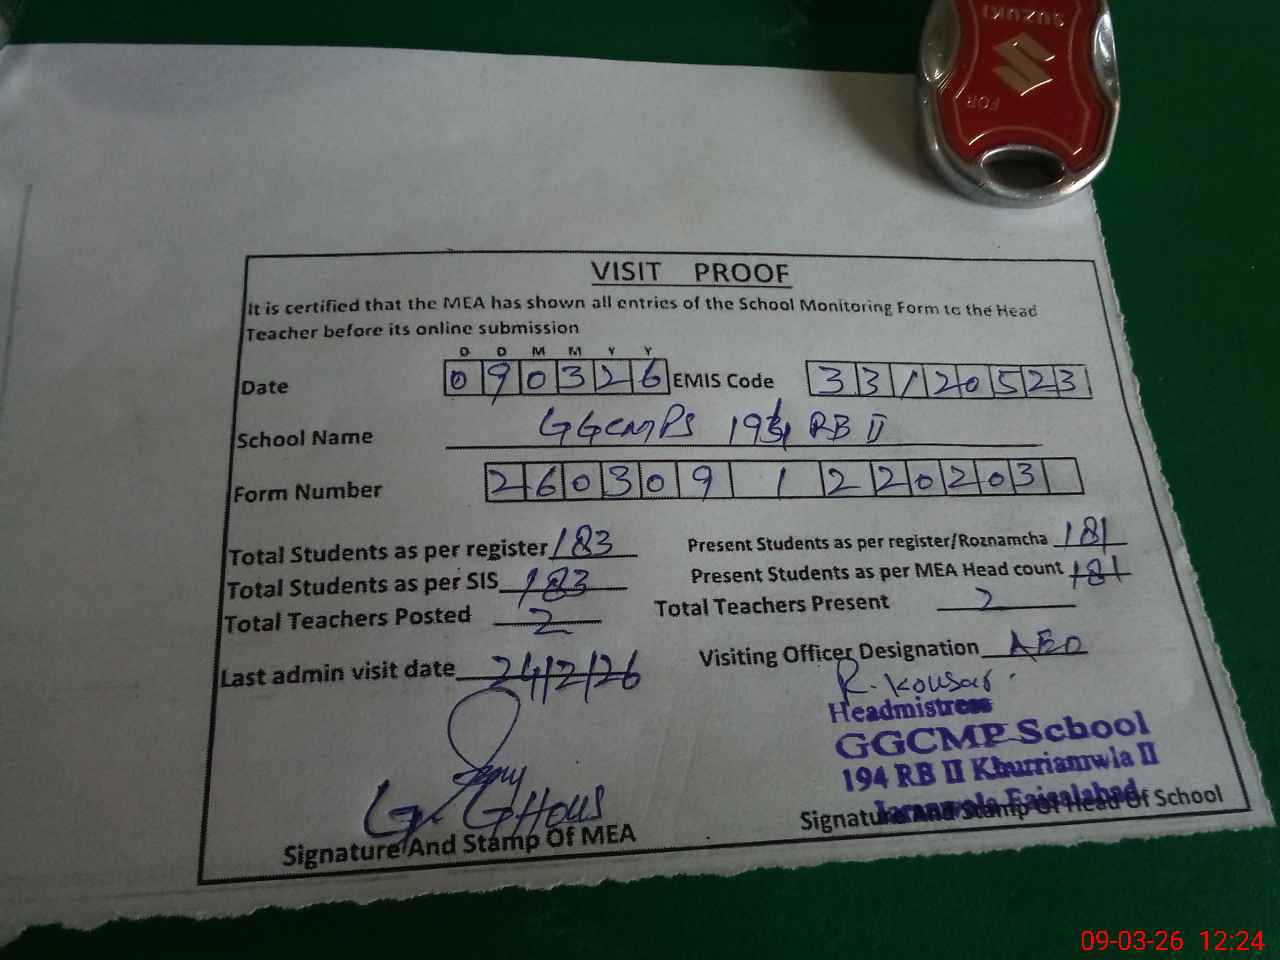 SUZUKI
FOR
VISIT PROOF
It is certified that the MEA has shown all entries of the School Monitoring Form to the Head
Teacher before its online submission
D D M M Y Y
Date 090326 EMIS Code 33120523
School Name GGCMPS 194 RB II
Form Number 260309 1 220203
Total Students as per register 183 Present Students as per register/Roznamcha 181
Total Students as per SIS 183 Present Students as per MEA Head count 181
Total Teachers Posted 2 Total Teachers Present 2
Last admin visit date 24/2/26 Visiting Officer Designation AEO
R. Kousar
Headmistress
GGCMP School
194 RB II Khurrianwla II
Jaranwala Faisalabad
G. GHous
Signature And Stamp Of MEA Signature And Stamp Of Head Of School
09-03-26 12:24